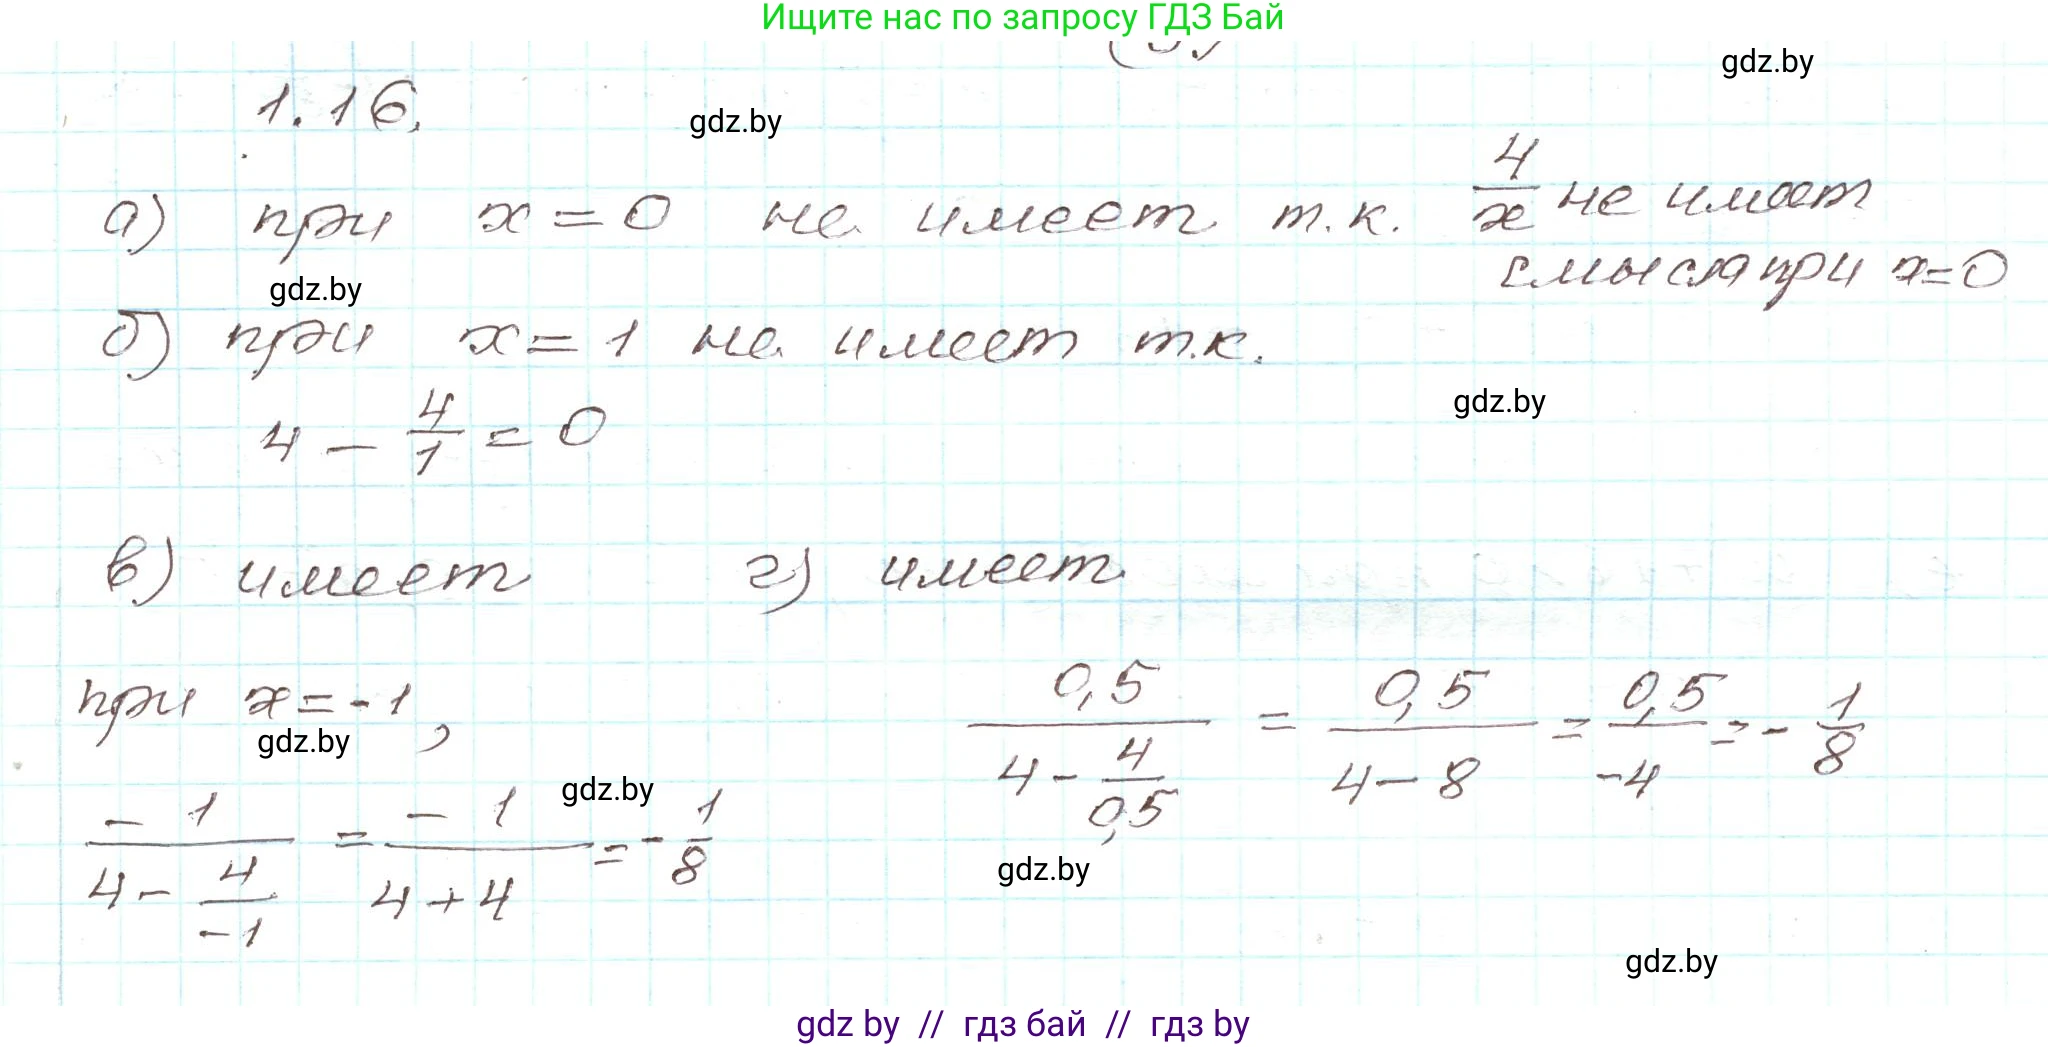 Ищите нас по запросу ГДЗ Бай
gdz.by
1.16.
gdz.by
а) при x = 0 не имеет т.к. 4/x не имеет
смысла при x=0
gdz.by
б) при x = 1 не имеет т.к.
gdz.by
4 - 4/1 = 0
в) имеет г) имеет
при x = -1,
gdz.by
0,5/(4 - 4/0,5) = 0,5/(4 - 8) = 0,5/-4 = -1/8
gdz.by
-1/(4 - 4/-1) = -1/(4+4) = -1/8
gdz.by
gdz.by
gdz by // гдз бай // гдз by